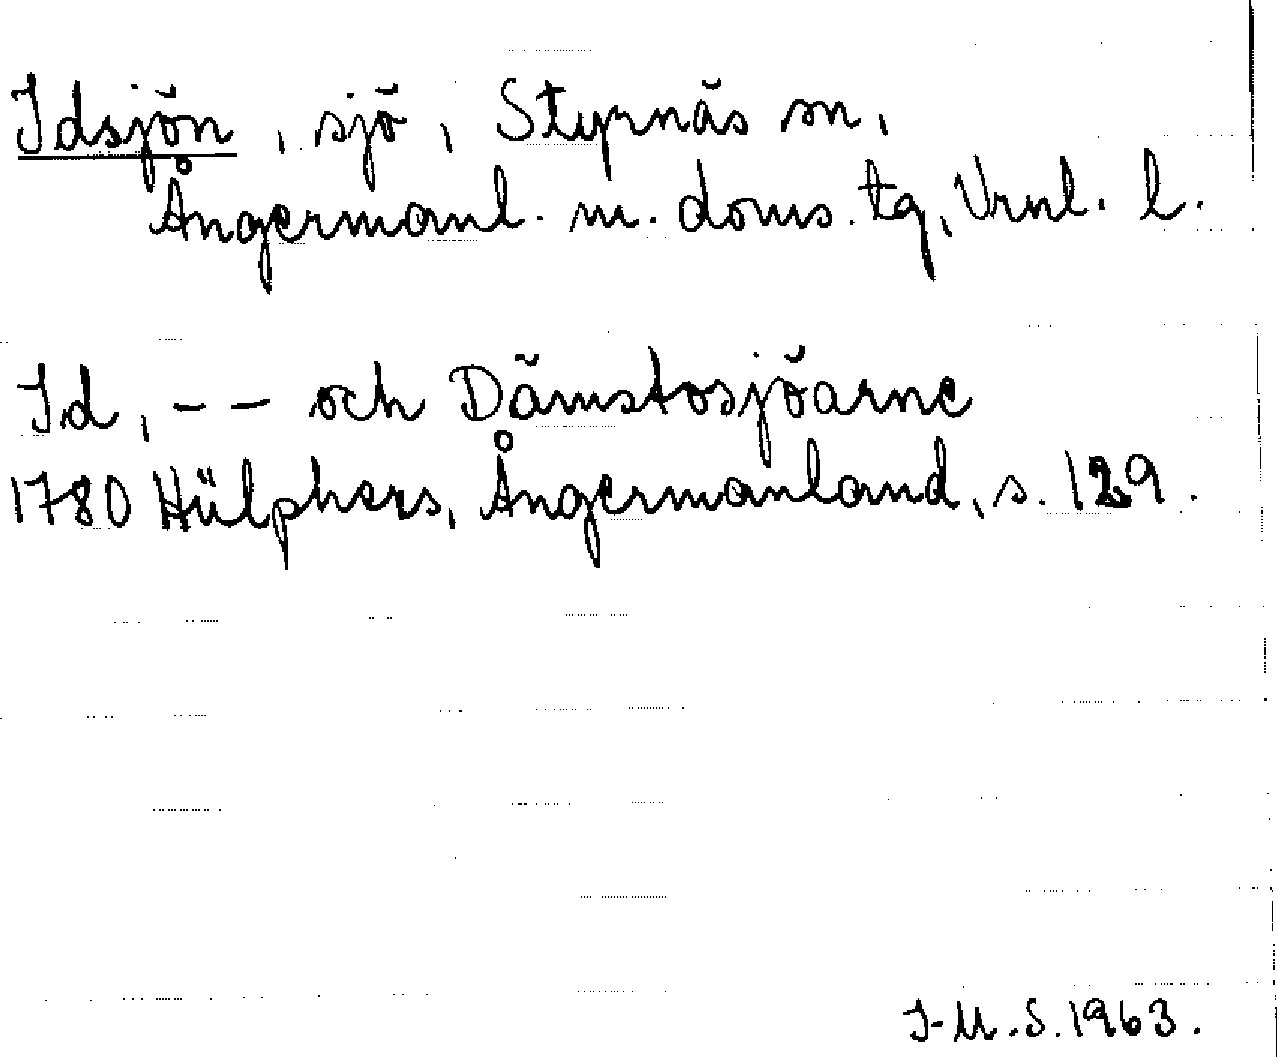 Idsjön, sjö, Styrnäs sn,
Ångermanl. m. doms. tg, Vrnl. l.
Id, -- och Dämstosjöarne
1780 Hülphers, Ångermanland, s. 129.
I-M.S. 1963.